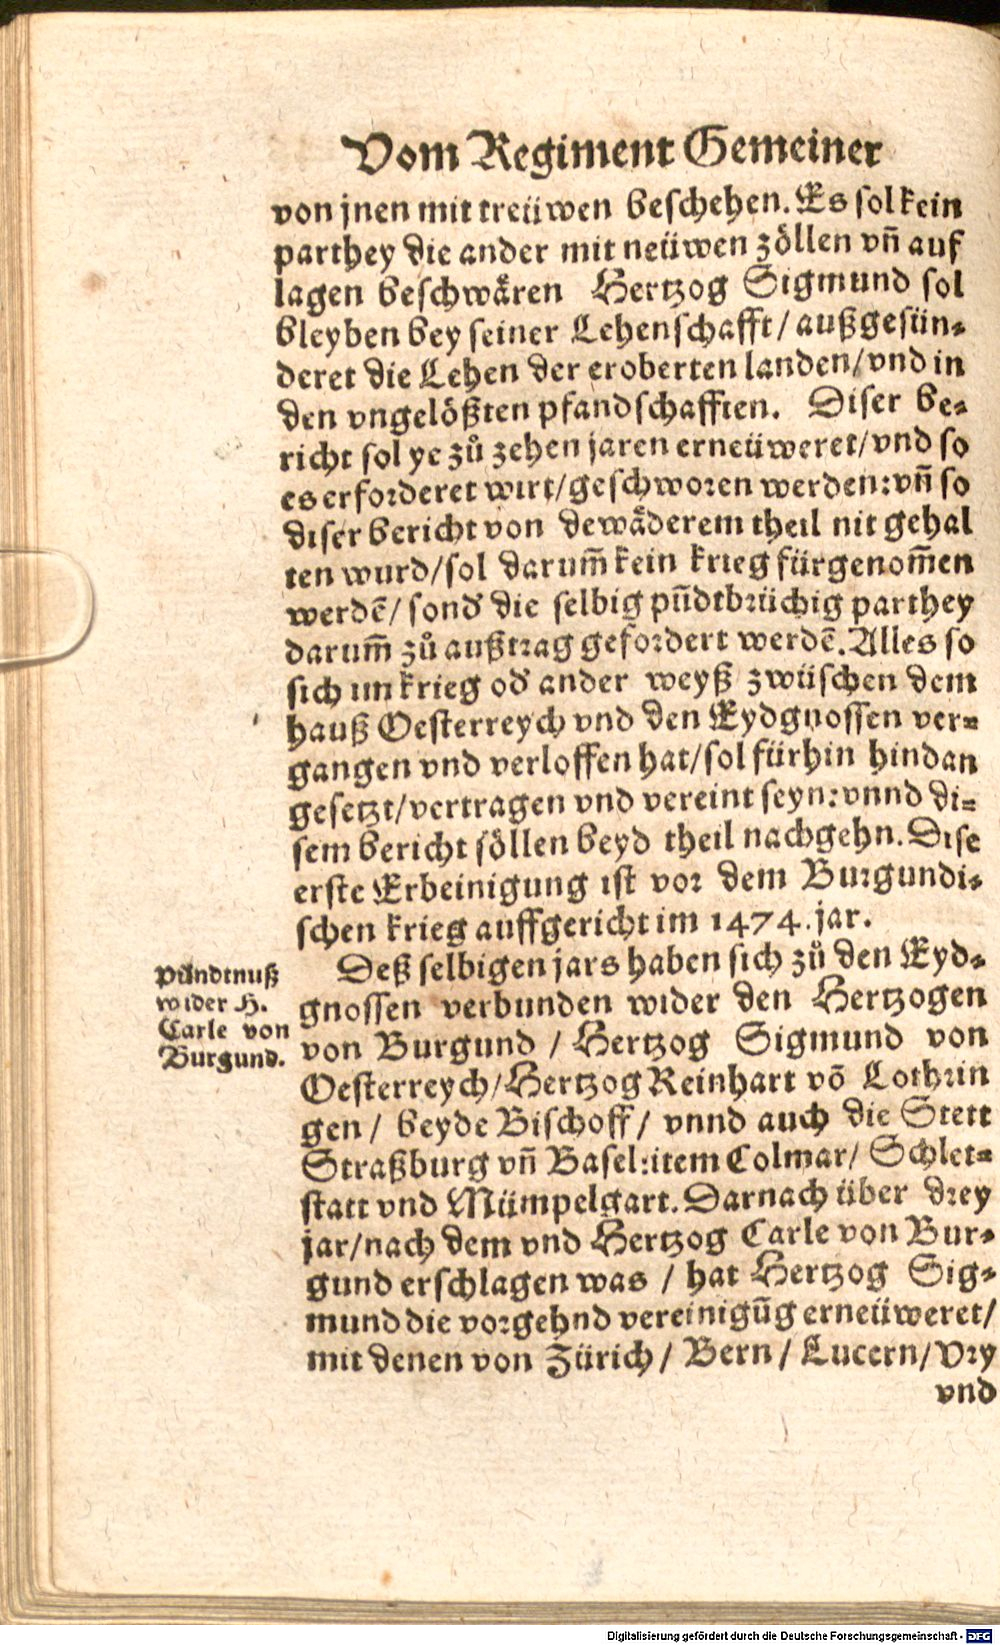 Vom Regiment Gemeiner
von jnen mit treüwen beschehen. Es sol kein
parthey die ander mit neüwen zöllen vñ auf
lagen beschwären Hertzog Sigmund sol
bleyben bey seiner Lehenschafft/ außgesün-
deret die Lehen der eroberten landen/ vnd in
den vngelößten pfandschafften. Diser be-
richt sol ye zů zehen jaren erneüweret/ vnd so
es erforderet wirt/ geschworen werden: vñ so
diser bericht von dewäderem theil nit gehal
ten wurd/ sol darum̃ kein krieg fürgenom̃en
werdẽ/ sond' die selbig pũdtbrüchig parthey
darum̃ zů außtrag gefordert werdẽ. Alles so
sich im krieg od' ander weyß zwüschen dem
hauß Oesterreych vnd den Eydgnossen ver-
gangen vnd verloffen hat/ sol fürhin hindan
gesetzt/ vertragen vnd vereint seyn: vnnd di-
sem bericht söllen beyd theil nachgehn. Dise
erste Erbeinigung ist vor dem Burgundi-
schen krieg auffgericht im 1474. jar.
Pündtnuß
wider H.
Carle von
Burgund.
Deß selbigen jars haben sich zů den Eyd-
gnossen verbunden wider den Hertzogen
von Burgund / Hertzog Sigmund von
Oesterreych/ Hertzog Reinhart võ Lothrin
gen / beyde Bischoff/ vnnd auch die Stett
Straßburg vñ Basel: item Colmar/ Schlet-
statt vnd Mümpelgart. Darnach über drey
jar/ nach dem vnd Hertzog Carle von Bur-
gund erschlagen was / hat Hertzog Sig-
mund die vorgehnd vereinigũg erneüweret/
mit denen von Zürich / Bern / Lucern/ Vry
vnd
Digitalisierung gefördert durch die Deutsche Forschungsgemeinschaft - DFG